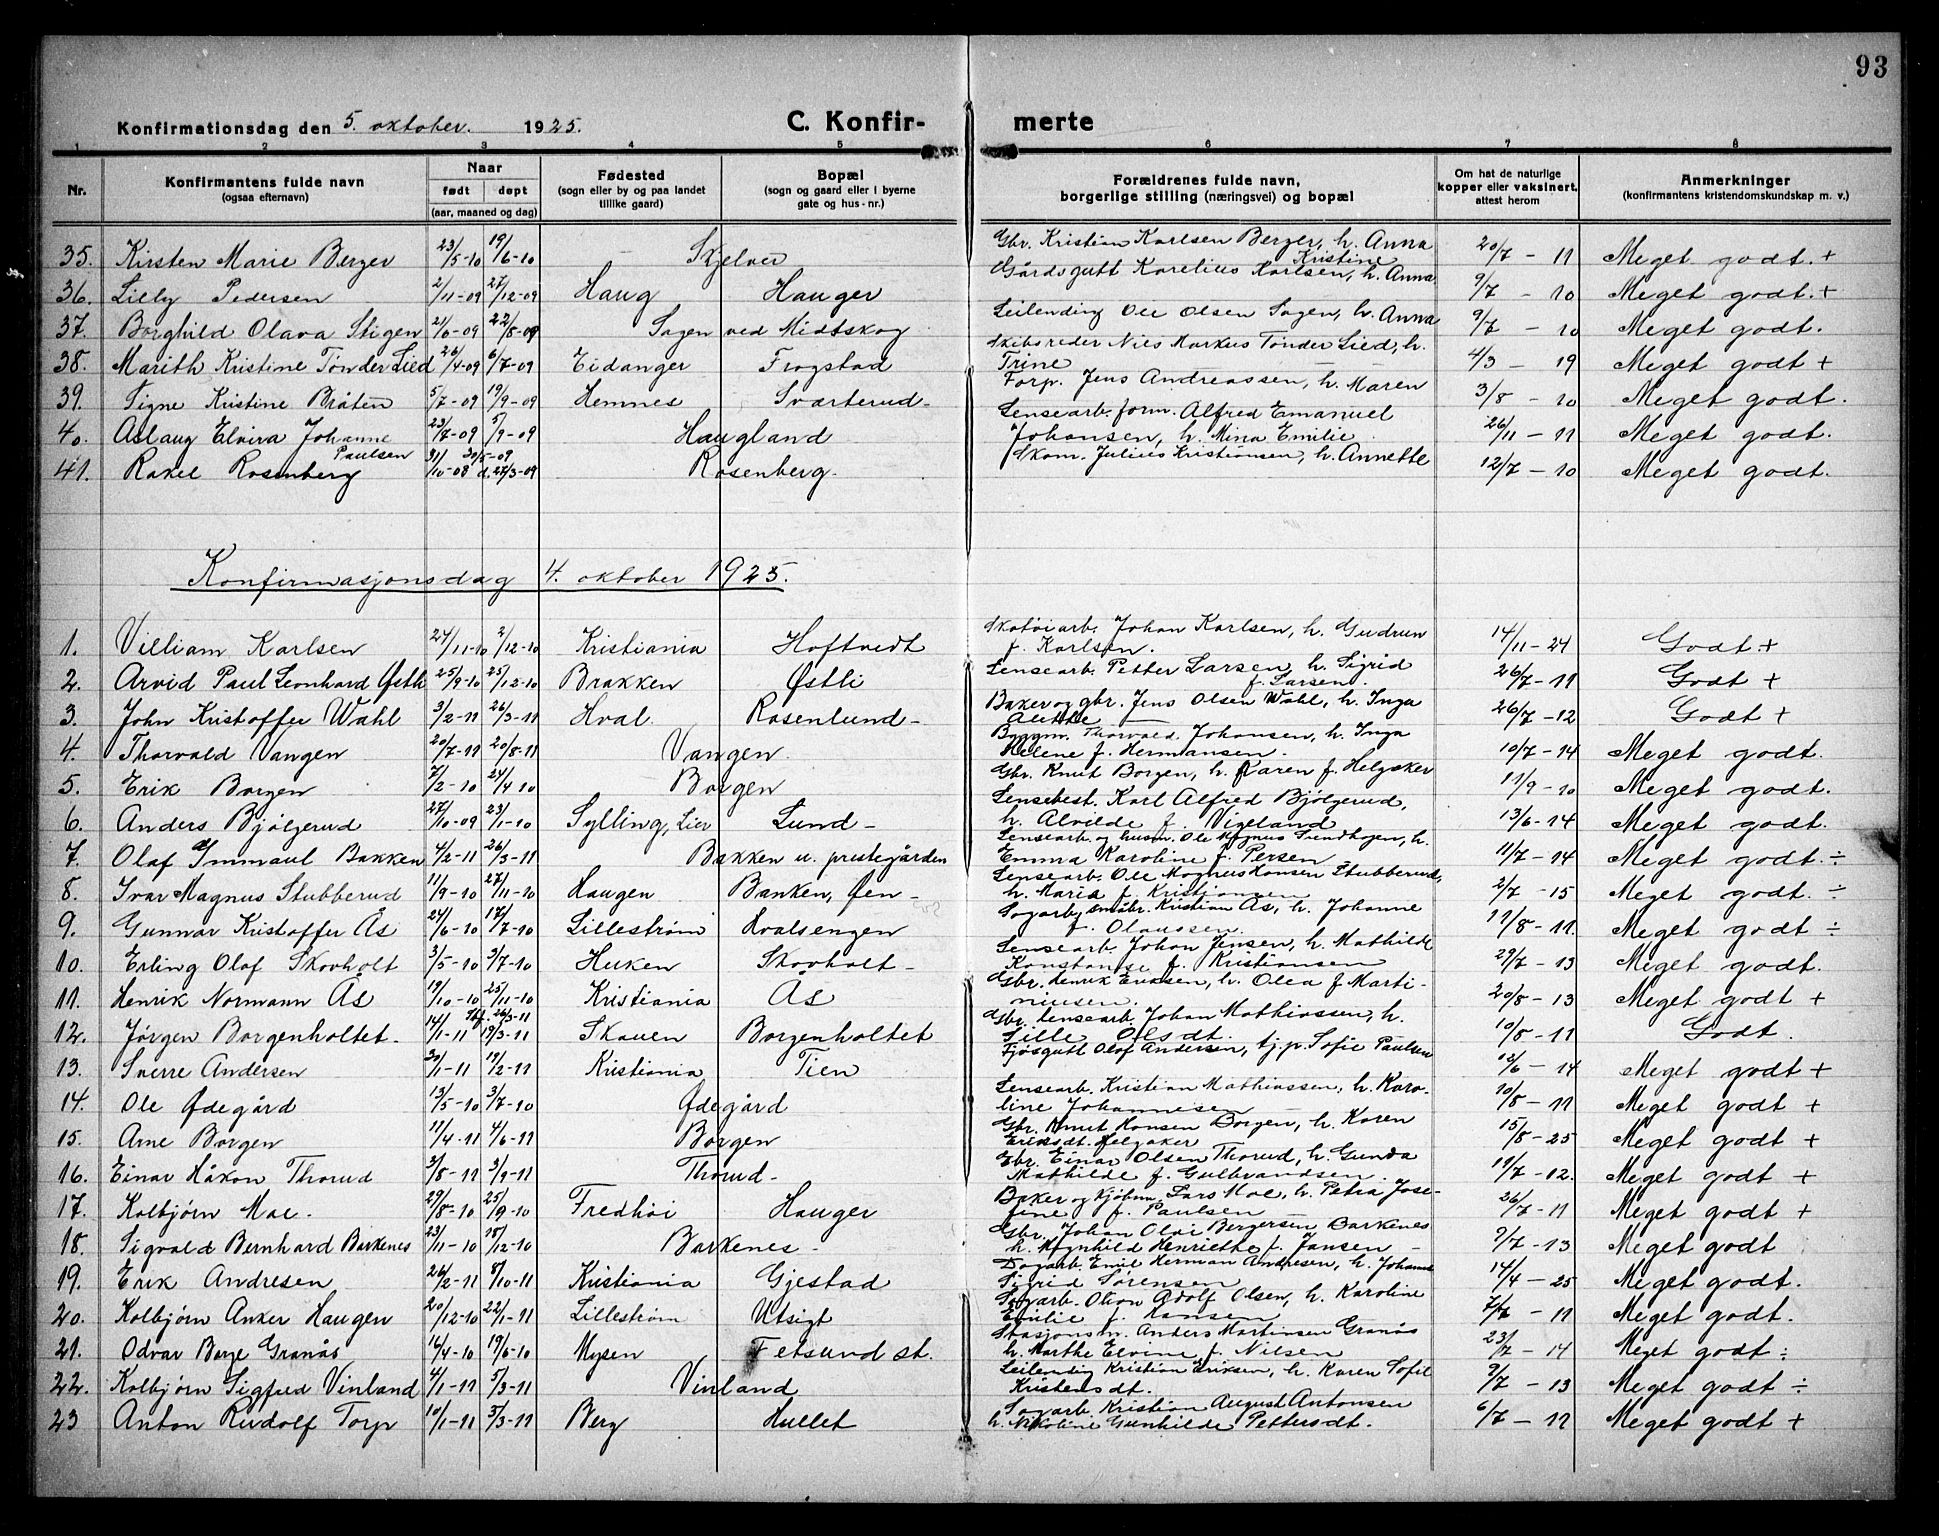 93
Konfirmationsdag den 5. oktober. 1925. C. Konfir- merte
1 2 3 4 5 6 7 8
Nr. Konfirmantens fulde navn (ogsaa efternavn) Naar født døpt (aar, maaned og dag) Fødested (sogn eller by og paa landet tillike gaard) Bopæl (sogn og gaard eller i byerne gate og hus-nr.) Forældrenes fulde navn, borgerlige stilling (næringsvei) og bopæl Om hat de naturlige kopper eller vaksinert, attest herom Anmerkninger (konfirmantens kristendomskundskap m. v.)
35. Kirsten Marie Berger 23/5-10 19/6-10 Skjelver Gbr. Kristian Karlsen Berger, h. Anna Kristine 20/7 - 11 Meget godt. +
36. Lilly Pedersen 2/11-09 27/12-09 Haug Hauger Gårdsgutt Karelius Karlsen, h. Anna 9/7 - 10 Meget godt. +
37. Borghild Olava Stigen 2/6-09 22/8-09 Sagen ved Midtskog Leilending Ole Olsen Sagen, h. Anna 9/7 - 10 Meget godt.
38. Marith Kristine Tønder Lied 26/4-09 6/7-09 Eidanger Frogstad Skibsreder Nils Markus Tønder Lied, h. Trine 4/3 - 19 Meget godt +
39. Signe Kristine Bråten 5/7-09 19/9-09 Hemnes Svarterud- Forp. Jens Andreassen, h. Maren 3/8 - 10 Meget godt.
40. Aslaug Elvira Johanne Paulsen 23/7-09 5/9-09 Haugland Lensearb. form. Alfred Emanuel Johansen, h. Mina Emilie 26/11 - 11 Meget godt.
41. Rakel Rosenberg 31/10-08 30/5-09 d. 27/3-09 Rosenberg. Skom. Julius Kristiansen, h. Annette 12/7 - 10 Meget godt.
Konfirmasjonsdag 4. oktober 1925.
1. Villiam Karlsen 24/11-10 2/12-10 Kristiania Hoftvedt Skotøiarb. Johan Karlsen, h. Gudrun f. Karlsen. 14/11 - 24 Godt +
2. Arvid Paul Leonhard Østli 25/9-10 25/12-10 Brakken Østli Lensearb. Petter Larsen, h. Sigrid f. Larsen. 26/7 - 11 Godt +
3. John Kristoffer Wahl 3/2-11 24/3-11 Hval Rosenlund- Baker og gbr. Jens Olsen Wahl, h. Inga 26/7 - 12 Godt +
4. Thorvald Vangen 20/7-11 20/8-11 Vangen. Byggm. Thorvald Johansen, h. Inga Helene f. Hermansen. 10/7 - 14 Meget godt.
5. Erik Borgen 7/2-10 24/4 10 Borgen Gbr. Knut Borgen, h. Karen f. Helgaker 11/9 - 10 Meget godt.
6. Anders Bjølgerud 27/10-09 23/1-10 Sylling, Lier Lund- Lensebest. Karl Alfred Bjølgerud, h. Alvilde f. Vigeland 13/6 - 14 Meget godt.
7. Olaf Immaul Bakken 4/2-11 26/3-11 Bakken u. prestegården Lensearb. og husm. Ole Magnus Sundhagen, h. Emma Karoline f. Persen 11/7 - 14 Meget godt. ÷
8. Ivar Magnus Stubberud 11/9-10 27/11-10 Haugen Banken, Øen- Lensearb. Ole Magnus Hansen Stubberud, h. Maria f. Kristiansen 2/7 - 15 Meget godt. ÷
9. Gunnar Kristoffer Ås 24/6-10 17/7-10 Lillestrøm Hvalsengen Sagarb, småbr. Kristian Ås, h. Johanne f. Olaussen. 11/8 - 11. Meget godt ÷
10. Erling Olaf Skovholt 3/5-10 3/7-10 Huken Skovholt- Lensearb. Johan Jensen, h. Mathilde Konstanse f. Kristiansen 29/7 - 13 Meget godt.
11. Henrik Normann Ås 19/10-10 25/11-10 Kristiania Ås Gbr. Henrik Evensen, h. Olea f. Martiniussen. 20/8 - 13 Meget godt +
12. Jørgen Borgenholtet. 14/1-11 19/3-11 Stf. 26/3-11 Skauen Borgenholtet Gbr. lensearb. Johan Mathiassen, h. Sille Olsdt. 10/8 - 11 Godt.
13. Sverre Andersen 20/1-11 19/2-11 Kristiania Tien Fjøsgutt Olaf Andersen, tj.p. Sofie Paulsen 12/6 - 14 Meget godt +
14. Ole Ødegård 13/5-10 3/7-10 Ødegård Lensearb. Kristian Mathiassen, h. Karoline Johannesen 10/8 - 11 Meget godt +
15. Arne Borgen 17/4-11 4/6-11 Borgen Gbr. Knut Hansen Borgen, h. Karen Eriksdt. Helgaker 15/8 - 25 Meget godt +
16. Einar Håkon Thorud 3/8-11 3/9-11 Thorud- Gbr. Einar Olsen Thorud, h. Gunda Mathilde f. Gulbrandsen. 11/7 - 12. Meget godt +
17. Kolbjørn Moe. 29/8-10 25/9-10 Fredhøi Hauger Baker og kjøbm. Lars Moe, h. Petra Josefine f. Paulsen 26/7 - 11 Meget godt +
18. Sigvald Bernhard Barkenes 23/11-10 18/12-10 Barkenes- Gbr. Johan Olai Bergersen Barkenes h. Magnhild Henriette f. Jansen 9/7 - 13 Meget godt
19. Erik Andresen 26/2-11 8/10-11 Kristiania Gjestad Dagarb. Emil Herman Andresen, h. Johanne Sigrid Sørensen 14/4 - 25 Meget godt.
20. Kolbjørn Anker Haugen 20/12-10 22/1-11 Lillestrøm Utsigt Sagarb. Olson Adolf Olsen, h. Karoline Emilie f. Hansen 7/7 - 11 Meget godt.
21. Odvar Borge Granås 16/4-10 19/6-10 Mysen Fetsund st. Stasjonsm. Anders Martinsen Granås h. Marthe Elvine f. Nilsen 23/7 - 14 Meget godt ÷
22. Kolbjørn Sigfred Vinland 4/1-11 5/3-11 Vinland Leilending Kristian Eriksen, h. Karen Sofie Kristensdt. 9/7 - 13 Meget godt ÷
23 Anton Rudolf Torp 10/1-11 5/3-11 Berg Hullet Sagarb Kristian August Antonsen h. Nikoline Gunhilde Pettersdt. 6/7 - 12 Meget godt +